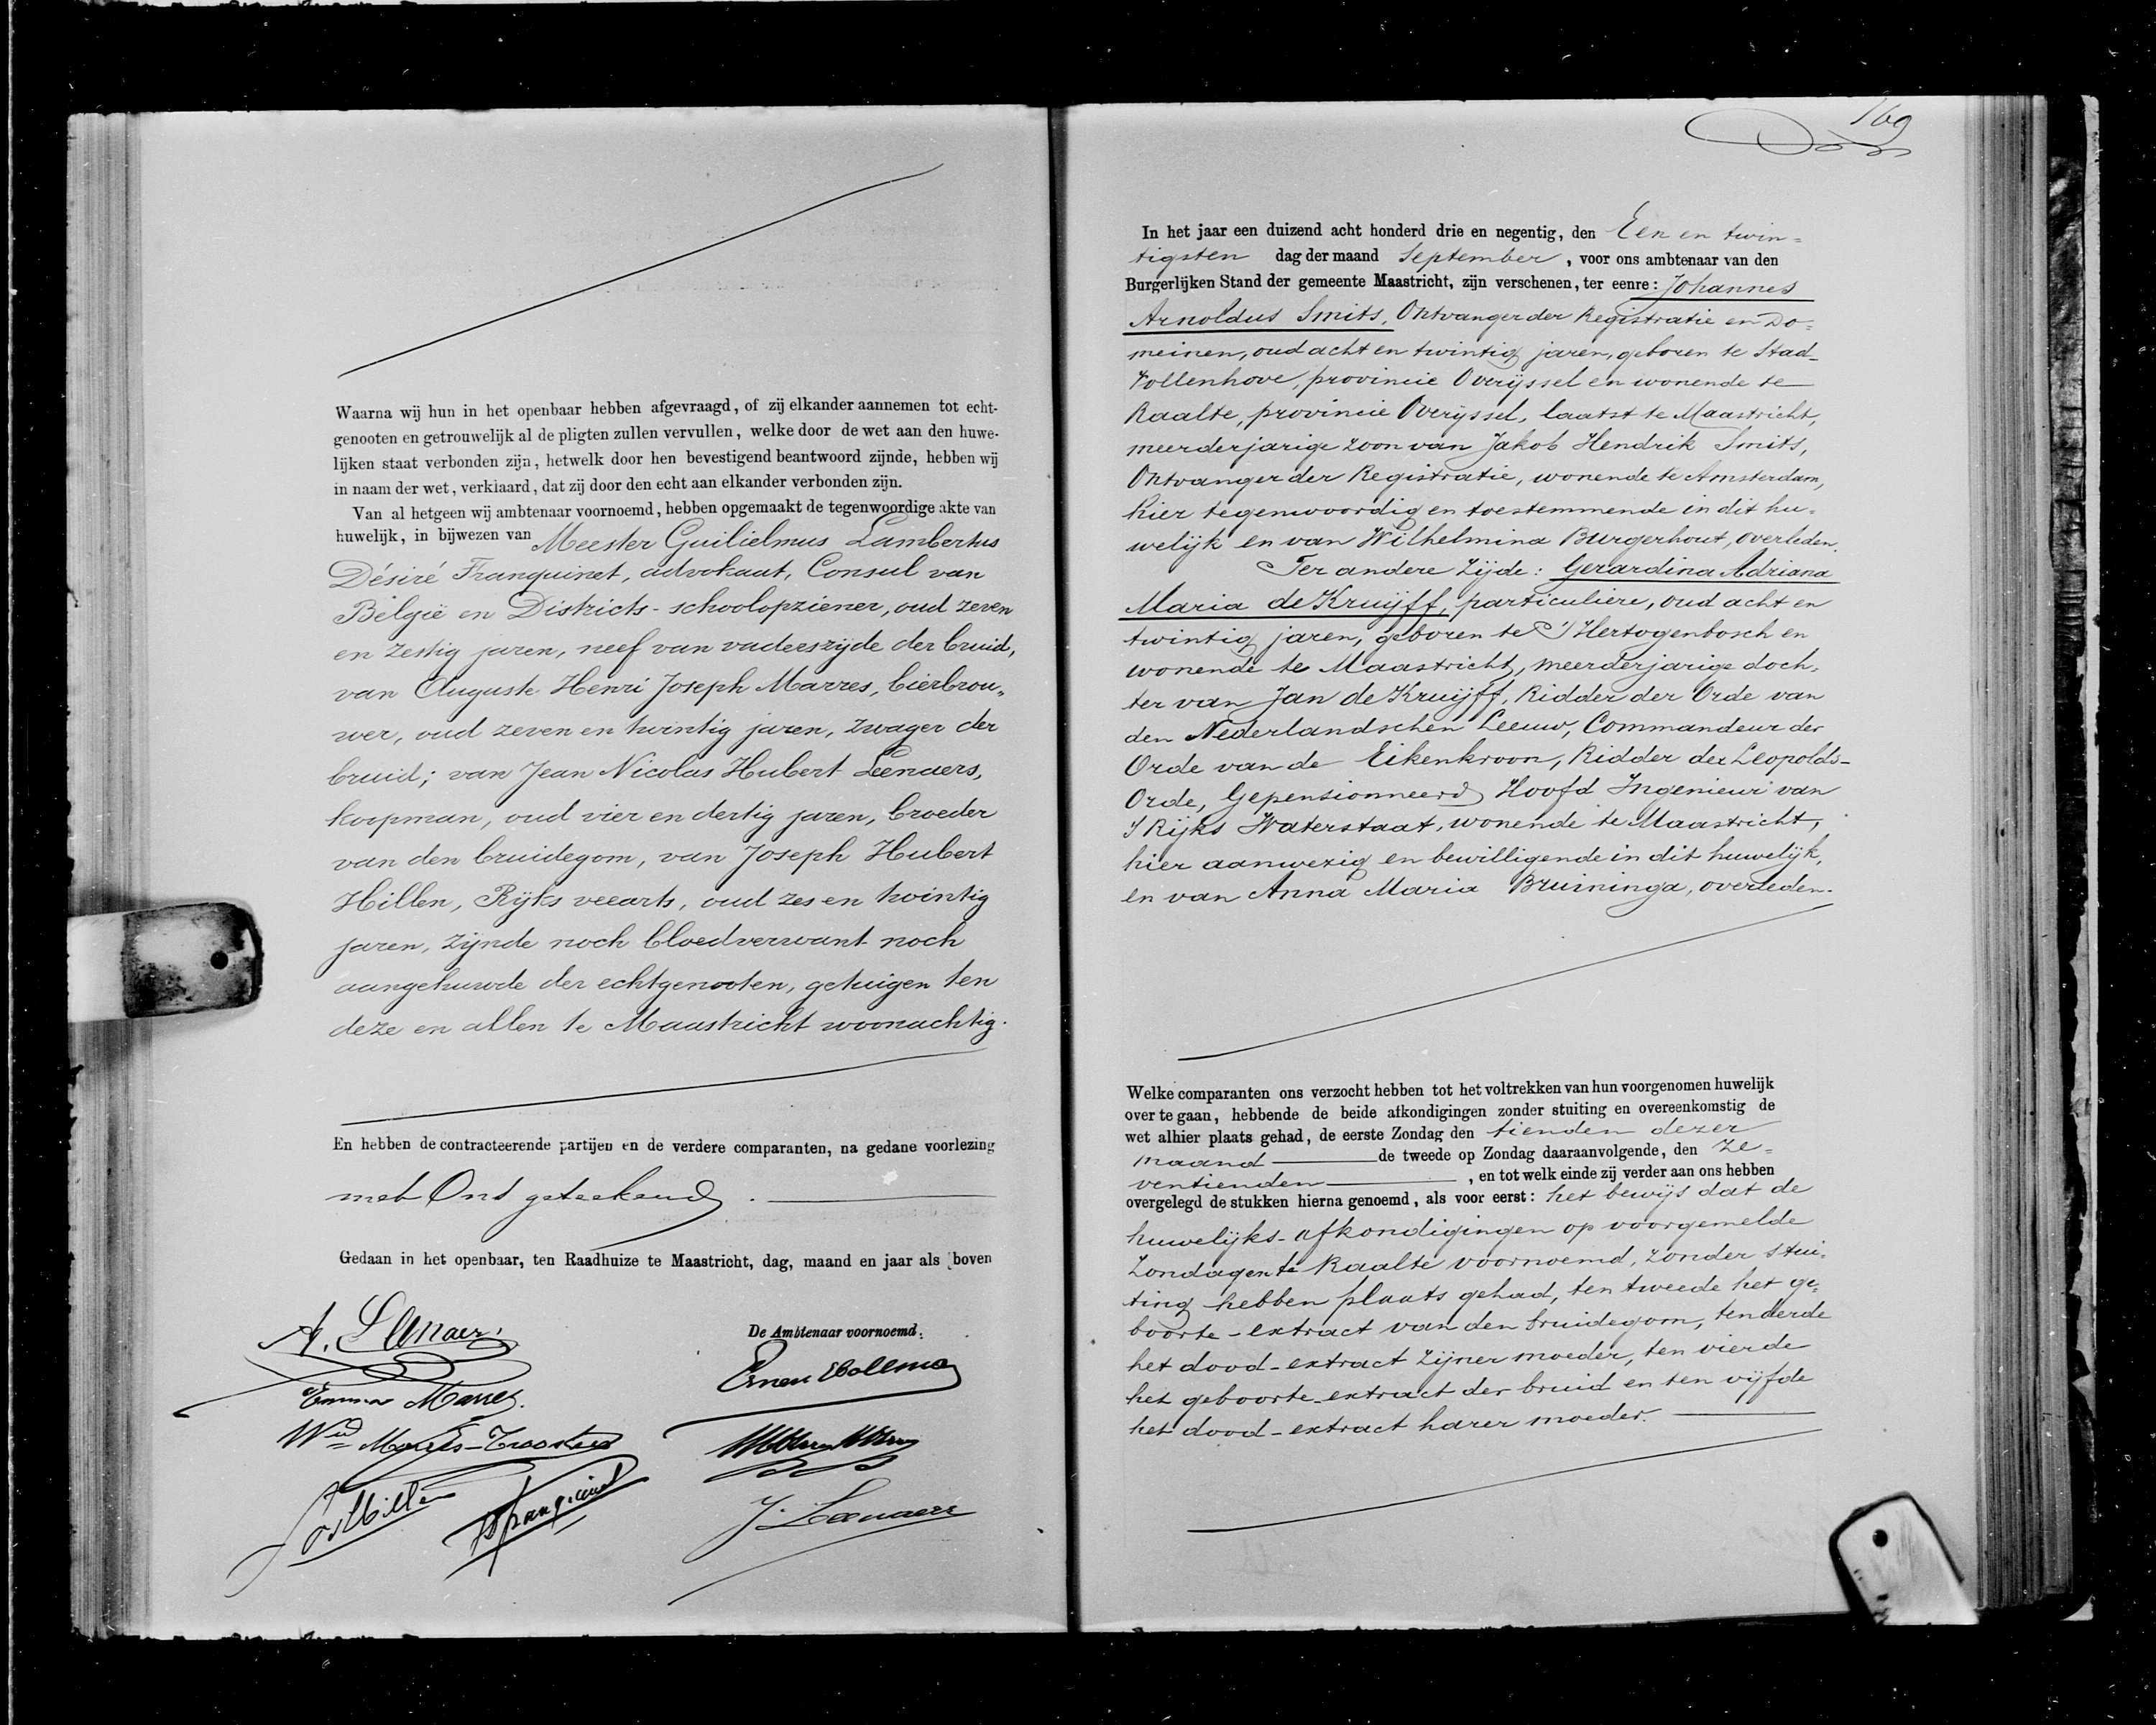 Waarna wij hun in het openbaar hebben afgevraagd, of zij elkander aannemen tot echt-
genooten en getrouwelijk al de pligten zullen vervullen, welke door de wet aan den huwe-
lijken staat verbonden zijn, hetwelk door hen bevestigend beantwoord zijnde, hebben wij
in naam der wet, verklaard, dat zij door den echt aan elkander verbonden zijn.
Van al hetgeen wij ambtenaar voornoemd, hebben opgemaakt de tegenwoordige akte van
huwelijk, in bijwezen van Meester Guilielmus Lambertus
Désiré Franquinet, advokaat, Consul van
België en Districts-schoolopziener, oud zeven
en zestig jaren, neef van vaderszijde der bruid,
van Auguste Henri Joseph Marres, bierbrou„
wer, oud zeven en twintig jaren, zwager der
bruid; van Jean Nicolas Hubert Leenaers,
koopman, oud vier en dertig jaren, broeder
van den bruidegom, van Joseph Hubert
Hillen, Rijks veearts, oud zes en twintig
jaren, zijnde noch bloedverwant noch
aangehuwde der echtgenooten, getuigen ten
deze en allen te Maastricht woonachtig.
En hebben de contracteerende partijen en de verdere comparanten, na gedane voorlezing
met Ons geteekend.
Gedaan in het openbaar, ten Raadhuize te Maastricht, dag, maand en jaar als boven
De Ambtenaar voornoemd:
A. Leenaers
Emma Marres.
Wed Marres-
JHillen
Franquinet
J. Leenaers
169
In het jaar een duizend acht honderd drie en negentig, den Een en twin=
tigsten dag der maand September, voor ons ambtenaar van den
Burgerlijken Stand der gemeente Maastricht, zijn verschenen, ter eenre: Johannes
Arnoldus Smits, Ontvanger der Registratie en Do=
meinen, oud acht en twintig jaren, geboren te Stad-
Vollenhove, provincie Overijssel en wonende te
Raalte, provincie Overijssel, laatst te Maastricht,
meerderjarige zoon van Jakob Hendrik Smits,
Ontvanger der Registratie, wonende te Amsterdam,
hier tegenwoordig en toestemmende in dit hu=
welijk en van Wilhelmina Burgerhout, overleden.
Ter andere Zijde: Gerardina Adriana
Maria de Kruijff, particuliere, oud acht en
twintig jaren, geboren te 'sHertogenbosch en
wonende te Maastricht, meerderjarige doch=
ter van Jan de Kruijff, Ridder der Orde van
den Nederlandschen Leeuw, Commandeur der
Orde van de Eikenkroon, Ridder der Leopolds-
Orde, Gepensionneerd Hoofd Ingenieur van
'sRijks Waterstaat, wonende te Maastricht,
hier aanwezig en bewilligende in dit huwelijk,
en van Anna Maria Bruininga, overleden.
Welke comparanten ons verzocht hebben tot het voltrekken van hun voorgenomen huwelijk
over te gaan, hebbende de beide afkondigingen zonder stuiting en overeenkomstig de
wet alhier plaats gehad, de eerste Zondag den tienden dezer
maand de tweede op Zondag daaraanvolgende, den ze=
ventienden, en tot welk einde zij verder aan ons hebben
overgelegd de stukken hierna genoemd, als voor eerst: het bewijs dat de
huwelijks-afkondigingen op voorgemelde
Zondagen te Raalte voornoemd, zonder stui=
ting hebben plaats gehad, ten tweede het ge=
boorte-extract van den bruidegom, ten derde
het dood-extract zijner moeder, ten vierde
het geboorte-extract der bruid en ten vijfde
het dood-extract harer moeder.